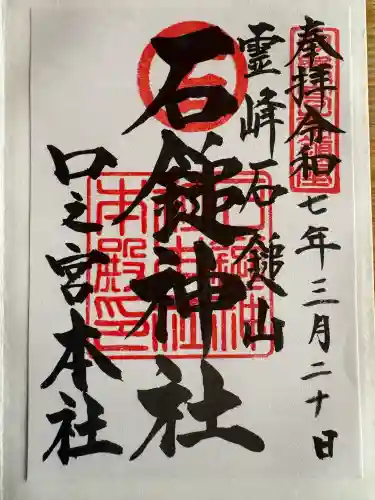 奉拝 令和七年三月二十日
霊峰石鎚山
石鎚神社
口之宮本社